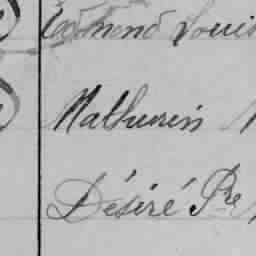 Edmond Louis
Mathurin
Désiré Pre